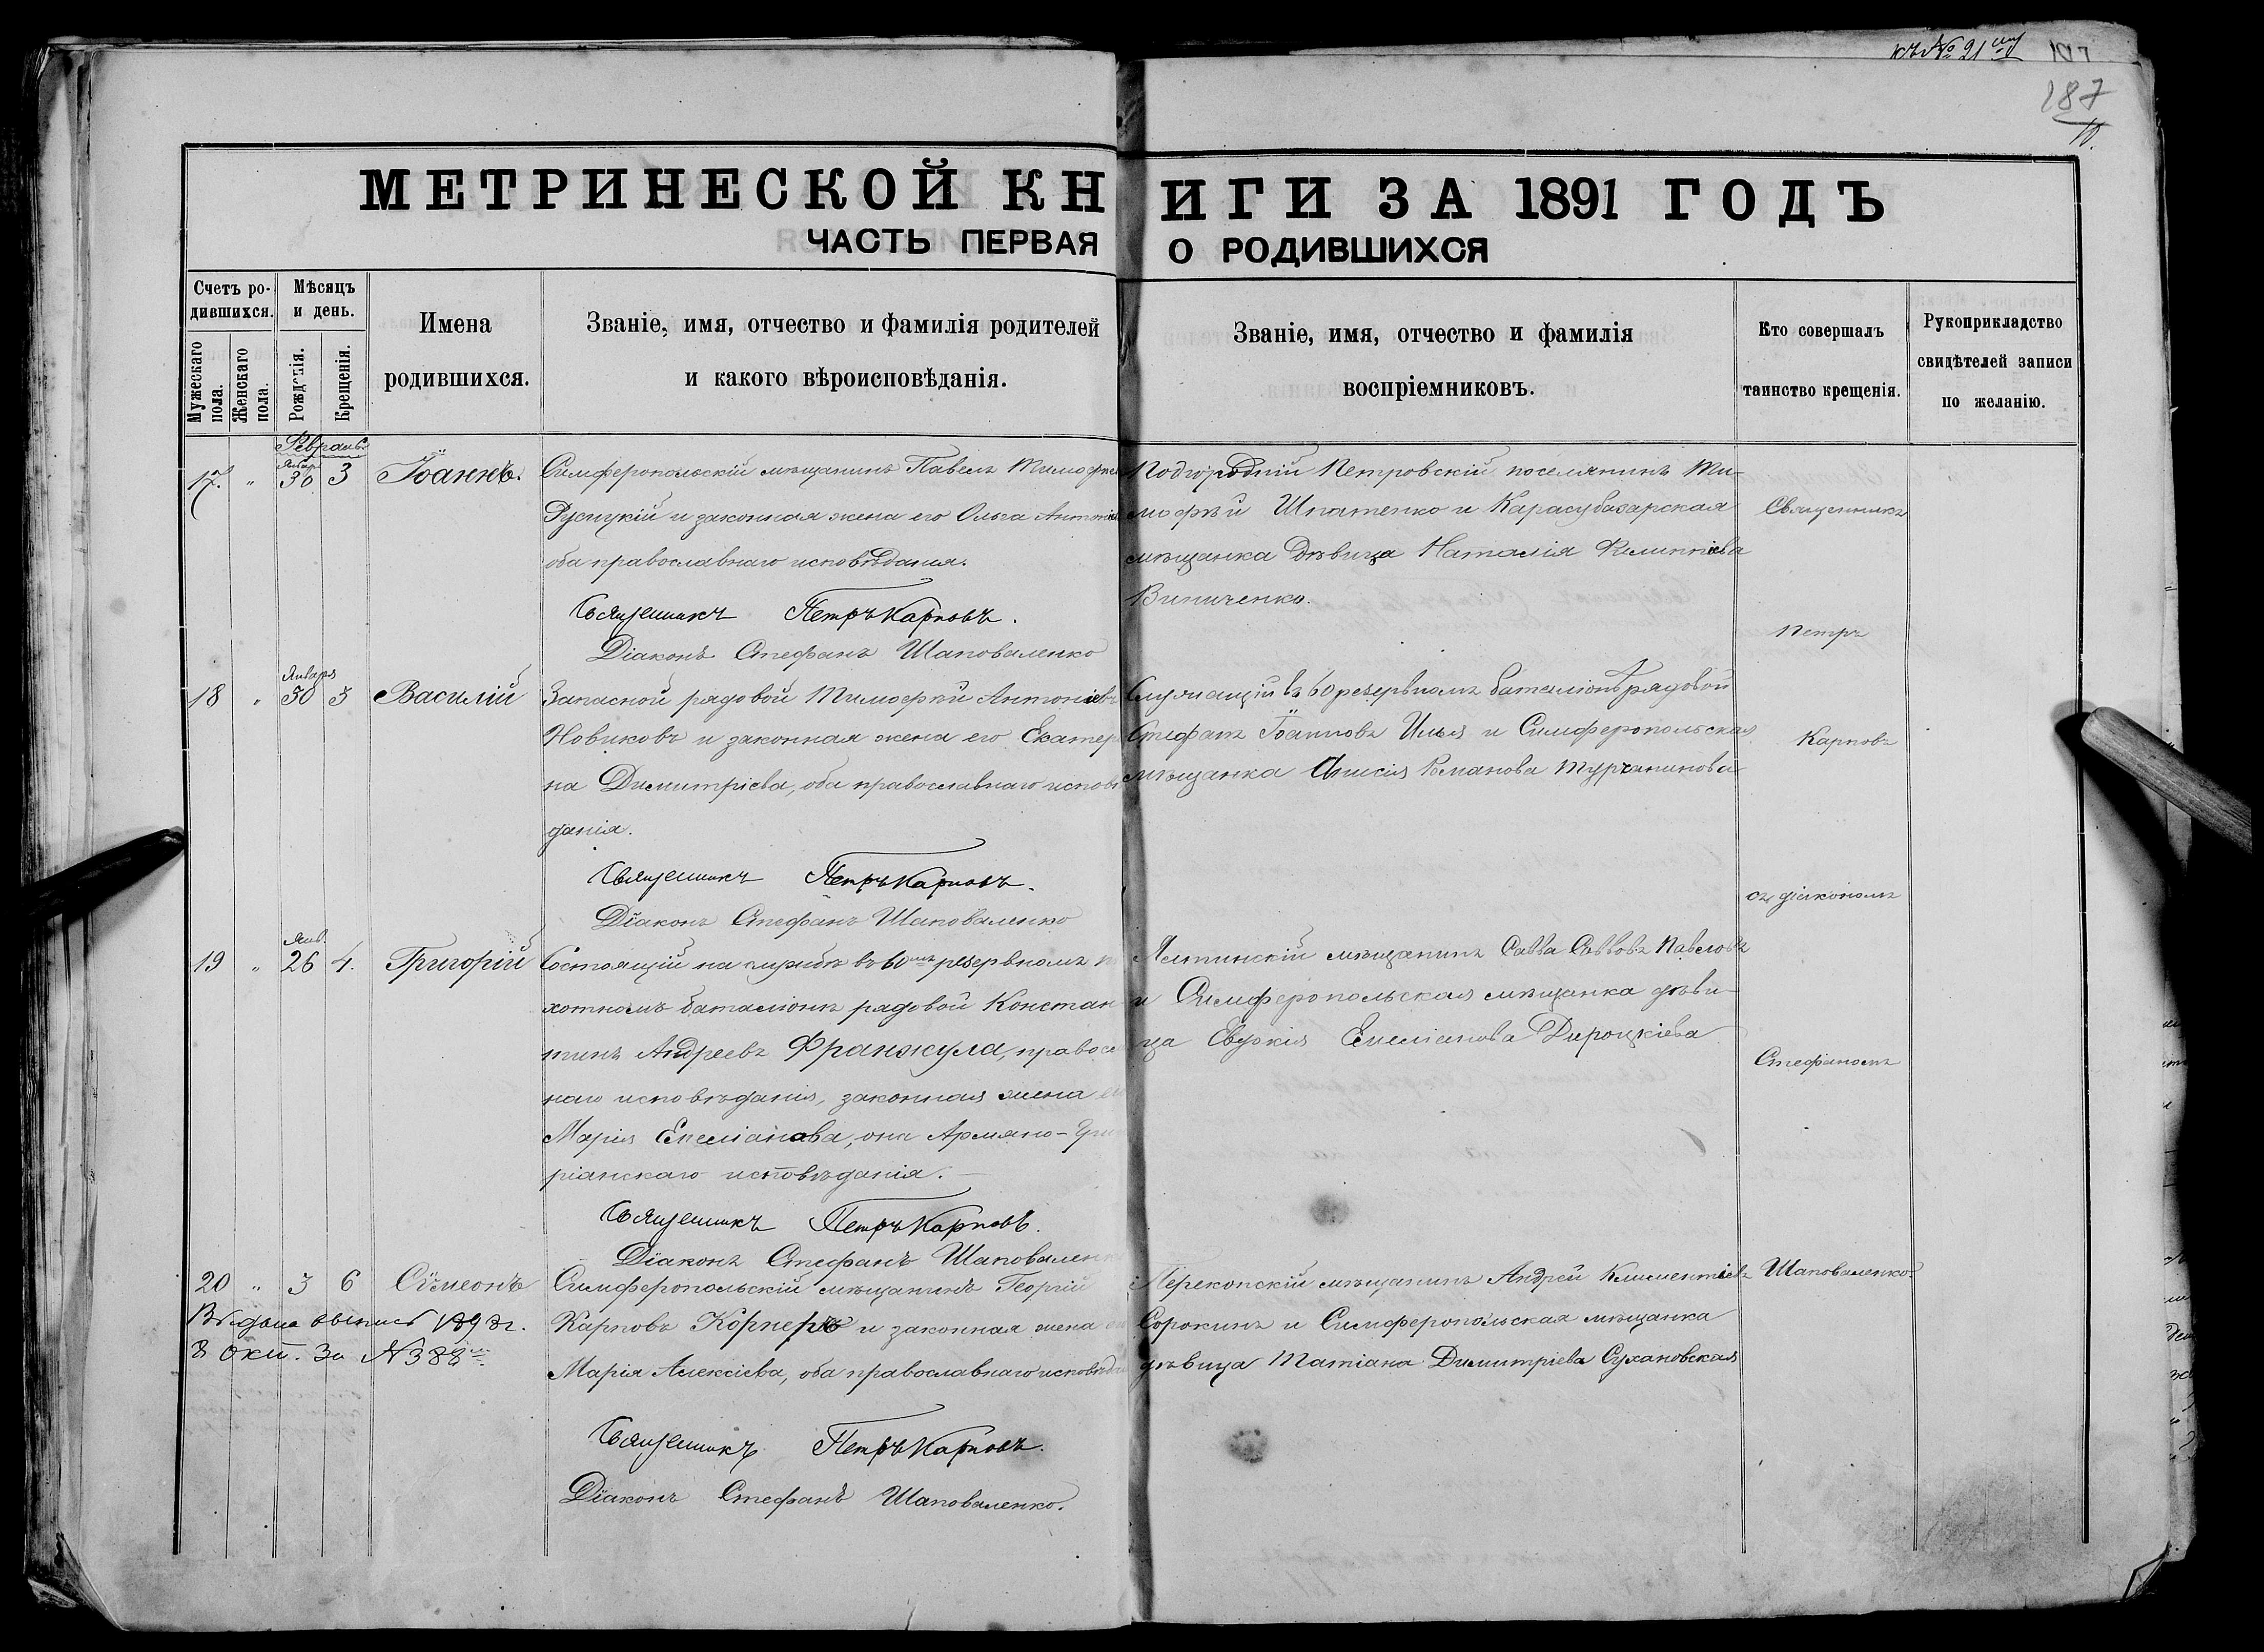 къ № 21
187
МЕТРИЧЕСКОЙ КНИГИ ЗА 1891 ГОДЪ
ЧАСТЬ ПЕРВАЯ О РОДИВШИХСЯ
Счетъ ро-
дившихся.
Мужескаго
пола.
Женскаго
пола.
Мѣсяцъ
и день.
Рожденія.
Крещенія.
Имена
родившихся.
Званіе, имя, отчество и фамилія родителей
и какого вѣроисповѣданія.
Званіе, имя, отчество и фамилія
воспріемниковъ.
Кто совершалъ
таинство крещенія.
Рукоприкладство
свидѣтелей записи
по желанію.
Февраль
Январ
17. „ 30 3 Іоаннъ.
Симферопольскій мѣщанинъ Павелъ Тимофеев
Русицкій и законная жена его Ольга Антоніева
оба православнаго исповѣданія.
Священникъ Петръ Карповъ.
Діаконъ Стефанъ Шаповаленко
Подгородній Петровскій поселянинъ Ти-
мофѣй Ипатенко и Карасубазарская
мѣщанка дѣвица Наталія
Виниченко.
Января
18 „ 30 3 Василій
Запасной рядовой Тимофей Антоніевъ
Новиковъ и законная жена его Екатери
на Димитріева, оба православнаго исповѣ
данія.
Священникъ Петръ Карповъ.
Діаконъ Стефанъ Шаповаленко
Служащій въ 60 резервномъ баталіонѣ рядовой
Стефанъ Іоанновъ Илья и Симферопольская
мѣщанка Анисія Романова Турчанинова
Янв.
19 „ 26 4. Григорій
Состоящій на службѣ въ 60мъ резервномъ пѣ
хотномъ баталіонѣ рядовой Констан
тинъ Андреевъ Франжула, правосл
наго исповѣданія, законная жена его
Марія Емеліанова, она Армяно-Гри
ріанскаго исповѣданія.
Священникъ Петръ Карповъ.
Діаконъ Стефанъ Шаповаленко
Ялтинскій мѣщанинъ Савва Саввовъ Павловъ
и Симферопольская мѣщанка дѣви-
ца Евдокія Емеліанова
20 „ 3 6 Сѵмеонъ
Выдана выпись 1898 г.
8 окт. за № 388
Симферопольскій мѣщанинъ Георгій
Карповъ Корнеръ и законная жена его
Марія Алексіева, оба православнаго исповѣдан
Священникъ Петръ Карповъ.
Діаконъ Стефанъ Шаповаленко.
Перекопскій мѣщанинъ Андрей Климентіевъ
Сорокинъ и Симферопольская мѣщанка
дѣвица Татіана Димитріева Сухановская
Священникъ
Петръ
Карповъ
съ діакономъ
Стефаномъ
Шаповаленко.